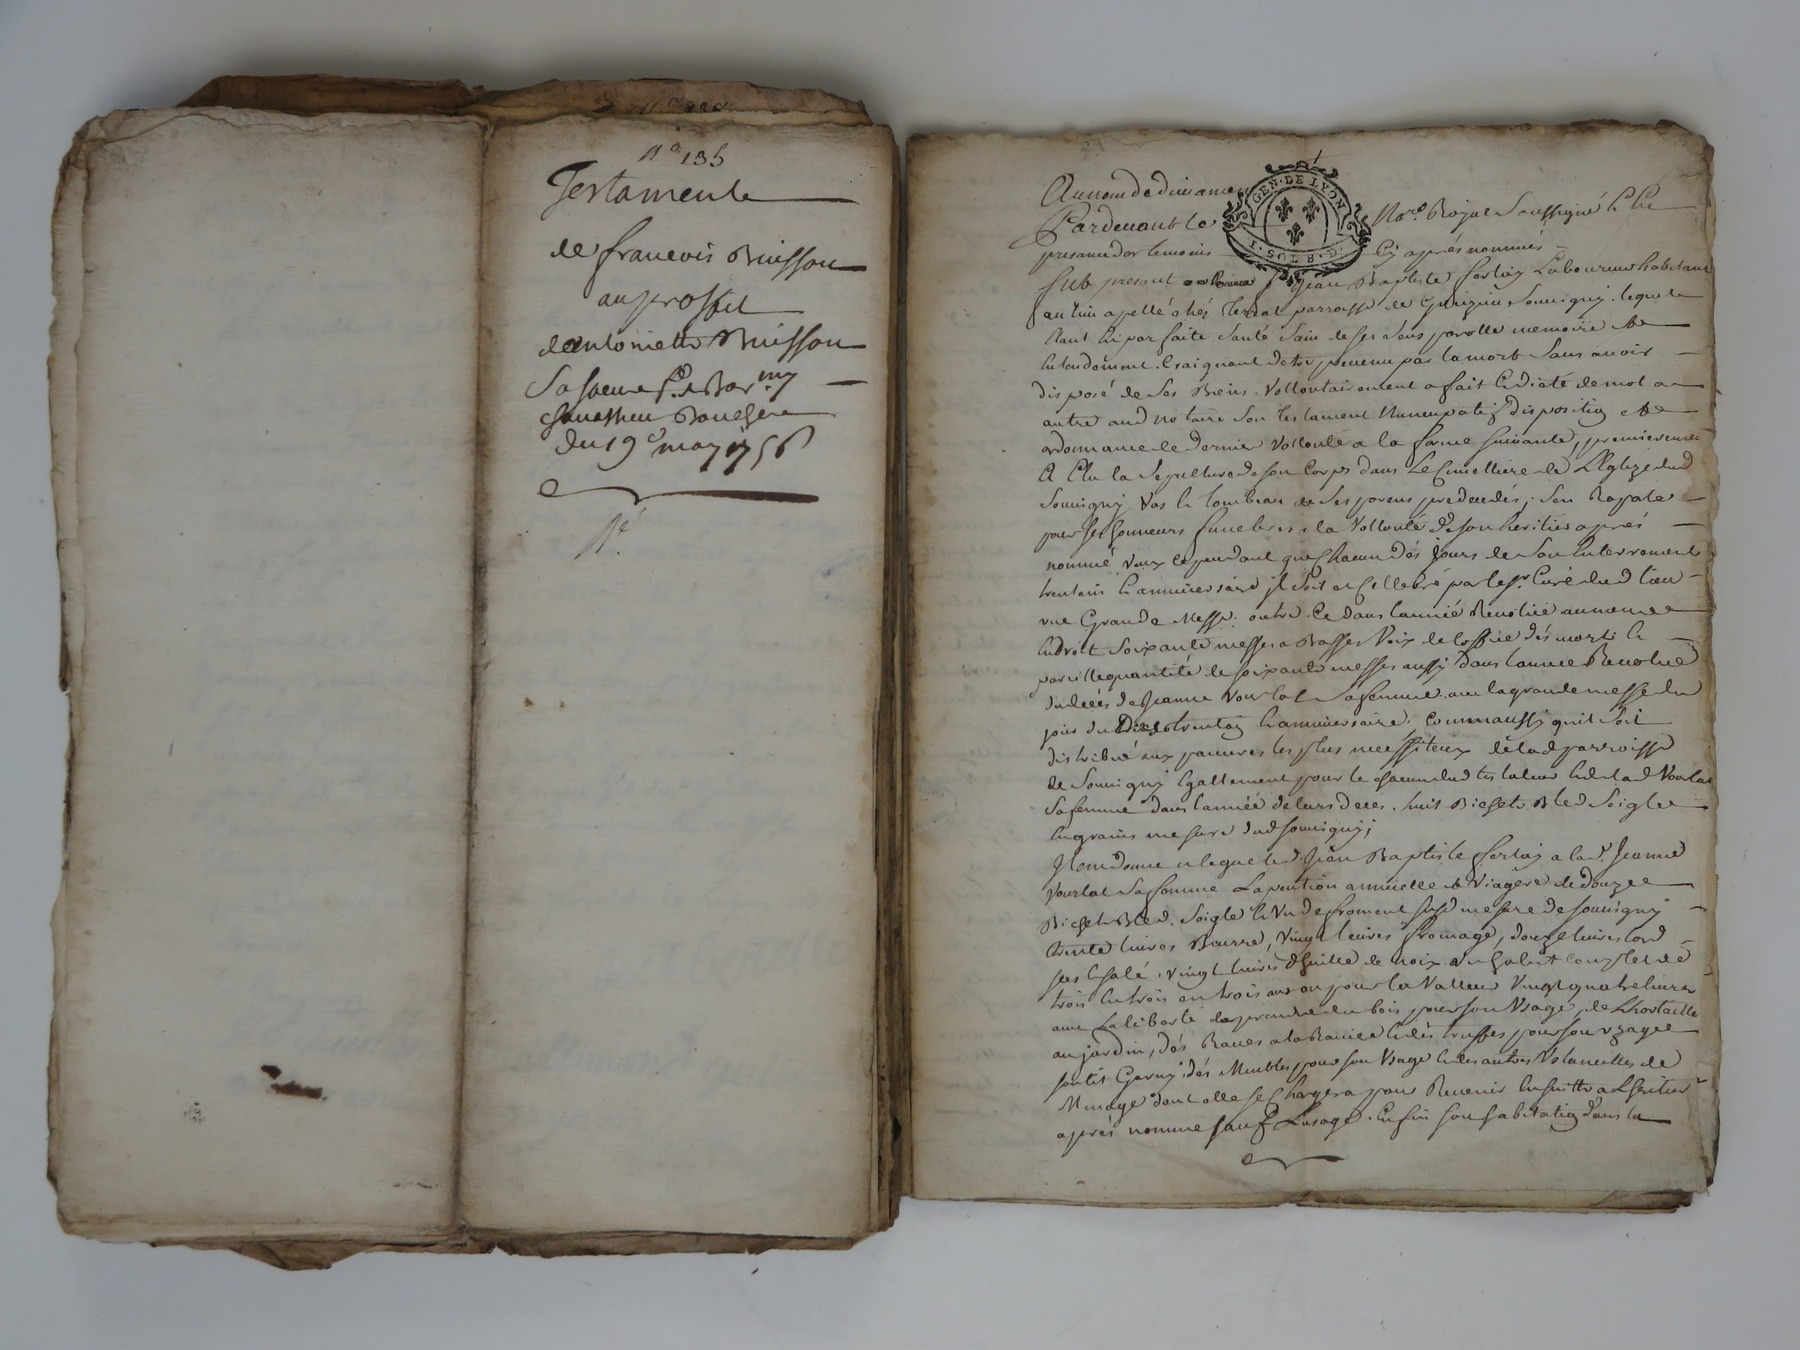 N° 135
Testament
de francois Buisson
au proffit
dantoinette Buisson
Sa Soeur f.e de Bar.my
Bouchere
du 19e may 1756
Au nom de dieu amen
Pardevant le No.re Royal Soussigné Et En
presance dos temoins Cy après nommés
GEN·DE LYON
1·SOL 8·D·
fut present Jean Baptiste Laboureur habitant
au lieu apellé chés parroisse de Souvigny, lequel
Etant En parfaite Santé Sain de ses Sens parolle memoire Et
Entendement. Craignant detre prevenu par la mort Sans avoir
disposé de Ses Biens. Vollontairement a fait Et dicté de mot a
autre aud notaire Son testament Nuncupatif disposition Et
ordonnance de dernier Vollonté a la forme Suivante, premierement
A Elu la Sepulture de Son Corps dans Le Cimettiere de L'Eglize dud
Souvigny Vas Et tombeau de Ses parens predecedés; Sen Raporte
pour Ses honneurs funebres a la Vollonté de Son heritier après
nommé, Veux Cependant que Chacun dés jours de Son Enterrement
trentain Et anniversaire il Soit Cellebré par le Sr. Curé dud lieu
une Grande Messe. outre Ce dans lannée Revolue au meme
Endroit Soixante messes a Basses Voix de loffice dés morts Et
pareille quantité de soixante messes aussy dans lannée Revolue
du decés de Jeanne Vourlat Sa femme. avec la grande messe du
jour du Trentain Et anniversaire. Comme aussy quil Soit
distribué aux pauvres les plus necessiteux de lad parroisse
de Souvigny Egallement pour le chacun dud testateur Et de lad Vourlat
Sa femme dans lannée de leurs deces. huit Bichets Bled Soigle
En grains mesure dud Souvigny;
Item donne et legue led. Jean Baptiste a lad. Jeanne
Vourlat Sa femme La pention annuelle Et Viagere de douze
Bichets Bled. Soigle Et Un de froment susd mesure de Souvigny
trente livres Beurre, Vingt livres fromage, douze livres lard
Salé, Vingt livres d'huille de noix. Un habit complet de
trois En trois ans ou pour la Valleur Vingt quatre livres
avec La liberté de prendre du bois pour Son Usage, de L'hortaille
au jardin, dés Raves a la Raviere Et dés truffes pour Son uzage
Son lit Garny dés Meubles pour Son Usage Et des autres Ustancilles de
Menage dont elle Se Chargera pour Revenir Ensuitte a L'heritier
après nommé Sauf L'usage. Enfin Son habitation dans la